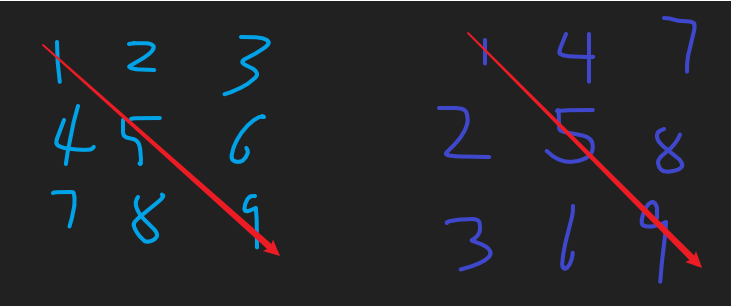 1 2 3
4 5 6
7 8 9
1 4 7
2 5 8
3 6 9